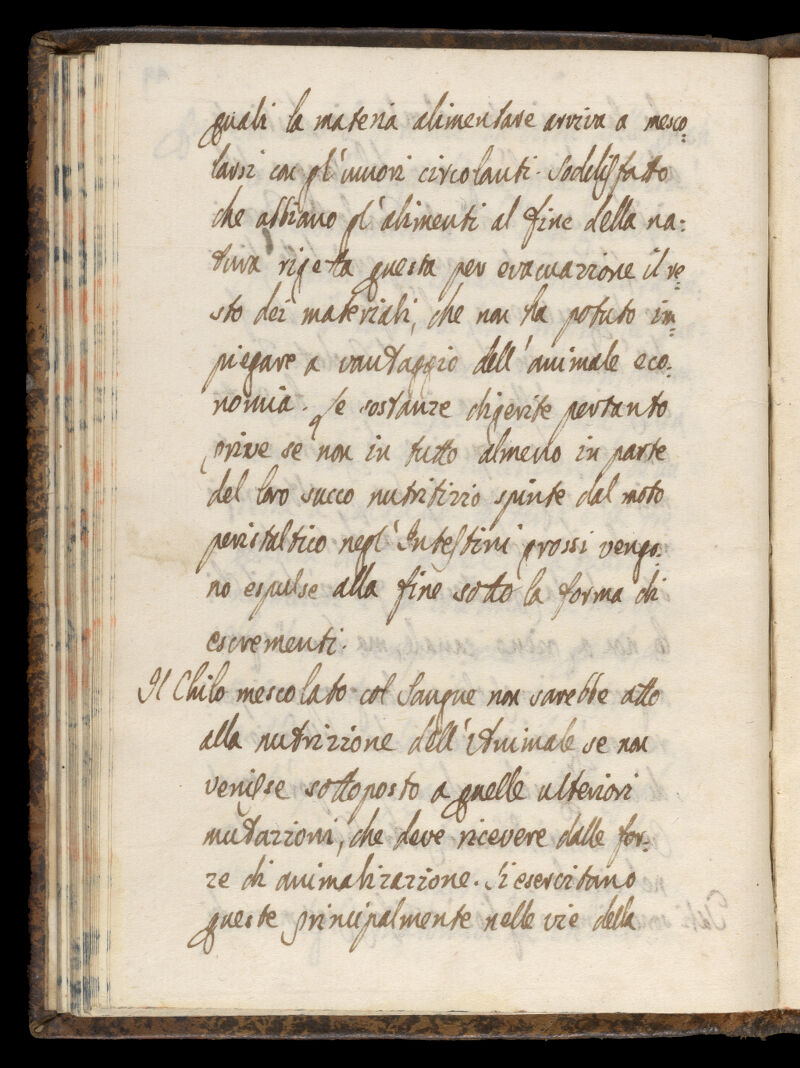 quali la materia alimentare arriva a mesco=
larsi con gl'umori circolanti. Sodelisfatto
che abbiano gl'alimenti al fine della na=
tura rigetta questa per evacuazione il re=
sto dei materiali, che non ha potuto im=
piegare a vantaggio dell'animale eco=
nomia. Le sostanze digerite pertanto
prive se non in tutto almeno in parte
del loro succo nutritizio spinte dal moto
peristaltico negl'Intestini grossi vengo=
no espulse alla fine sotto la forma di
escrementi.
Il Chilo mescolato col Sangue non sarebbe atto
alla nutrizione dell'Animale se non
venisse sottoposto a quelle ulteriori
mutazioni, che deve ricevere dalle for=
ze di animalizazione. Si esercitano
queste principalmente nelle vie della